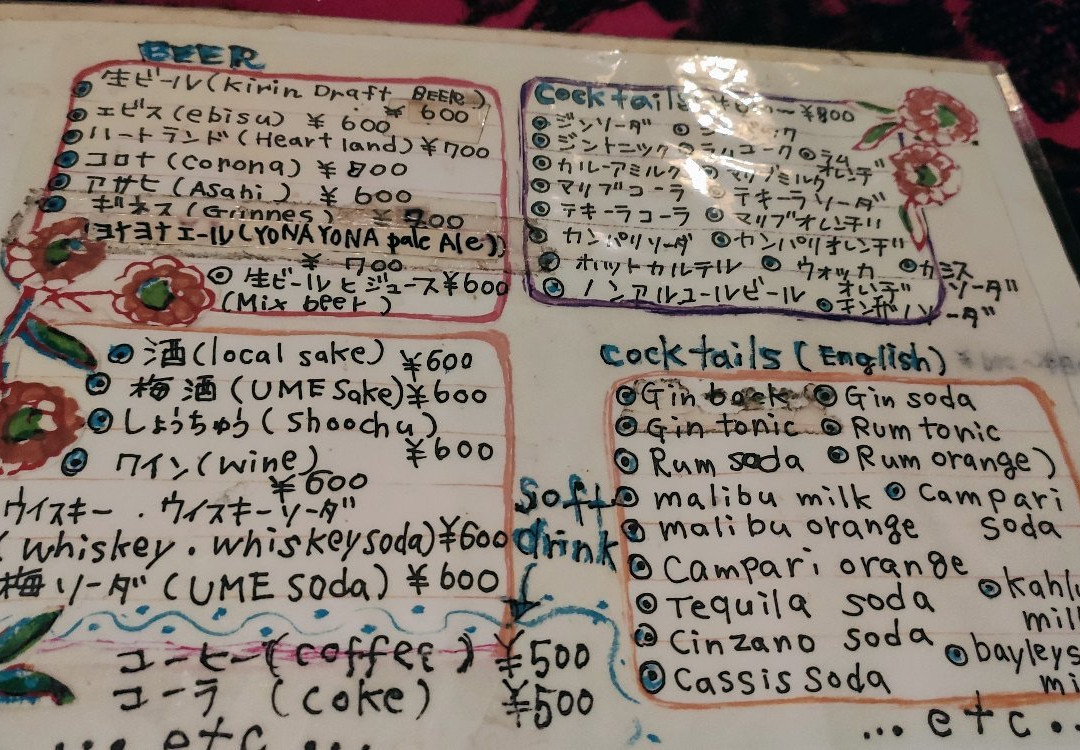 BEER
生ビール(Kirin Draft BEER)
¥ 600
エビス(ebisu) ¥ 600
ハートランド(Heart land) ¥700
コロナ(Corona) ¥ 800
アサヒ(Asahi) ¥ 600
ギネス(Guinnes) ¥ 900
ヨナヨナエール(YONA YONA pale Ale)
¥ 700
生ビールとジュース ¥600
(Mix beer)
酒(local sake) ¥600
梅酒(UME Sake) ¥600
しょうちゅう(Shoochu)
¥600
ワイン(wine)
¥600
ウイスキー・ウイスキーソーダ
(whiskey・whiskeysoda)¥600
梅ソーダ(UME soda) ¥600
Soft
drink
コーヒー(coffee) ¥500
コーラ(coke) ¥500
... etc ...
Cocktails ~¥800
ジンソーダ
ジントニック ラム
カルーアミルク オレンヂ
マリブコーラ マリブミルク
テキーラソーダ
テキーラコーラ マリブオレンヂ
カンパリソーダ カンパリオレンヂ
ホットカルテル ウォッカ カシス
オレンヂ ソーダ
ノンアルコールビール
Cocktails (English)
Gin back Gin soda
Gin tonic Rum tonic
Rum soda Rum orange)
malibu milk Campari
malibu orange soda
Campari orange
Tequila soda
Cinzano soda bayleys
Cassis soda
... etc ..